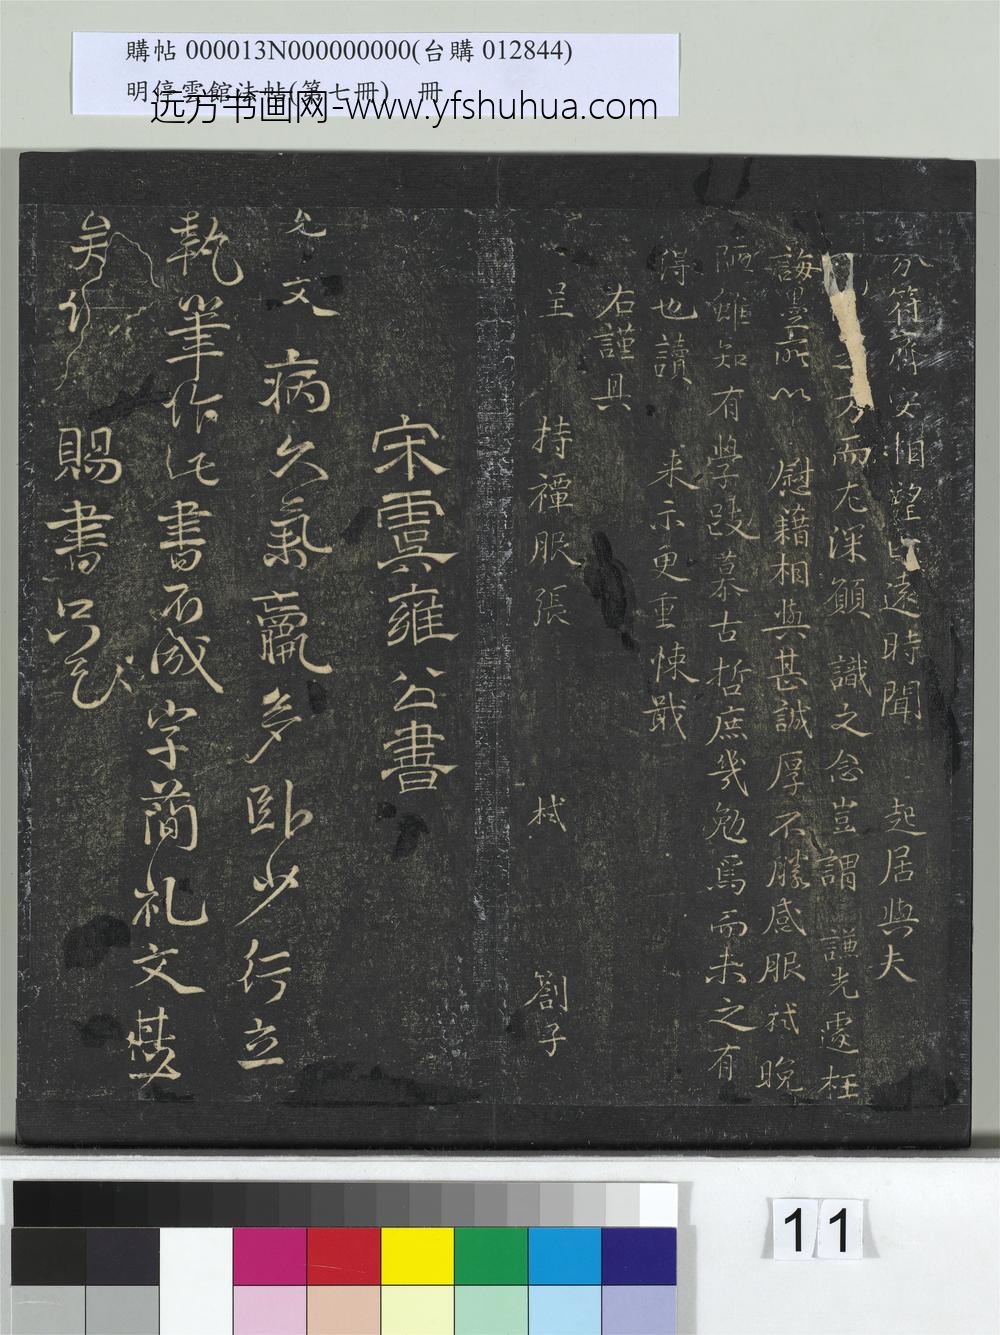 購帖 000013N000000000(台購 012844)
明停雲館法帖(第七冊) 冊
远方书画网-www.yfshuhua.com
符 相望 遠時聞 起居與夫
方而尤深願 識之念豈謂 謙光遽枉
誨墨所以 慰藉相與甚誠厚不勝感服栻晚
陋雖知有學段慕古哲庶幾勉焉而未之有
得也讀 来示更重悚戢
右謹具
呈 持禫服張 栻 劄子
宋虞雍公書
允文 病久氣羸多卧少行立
執筆作此書不成字簡礼文
矣 賜書
11